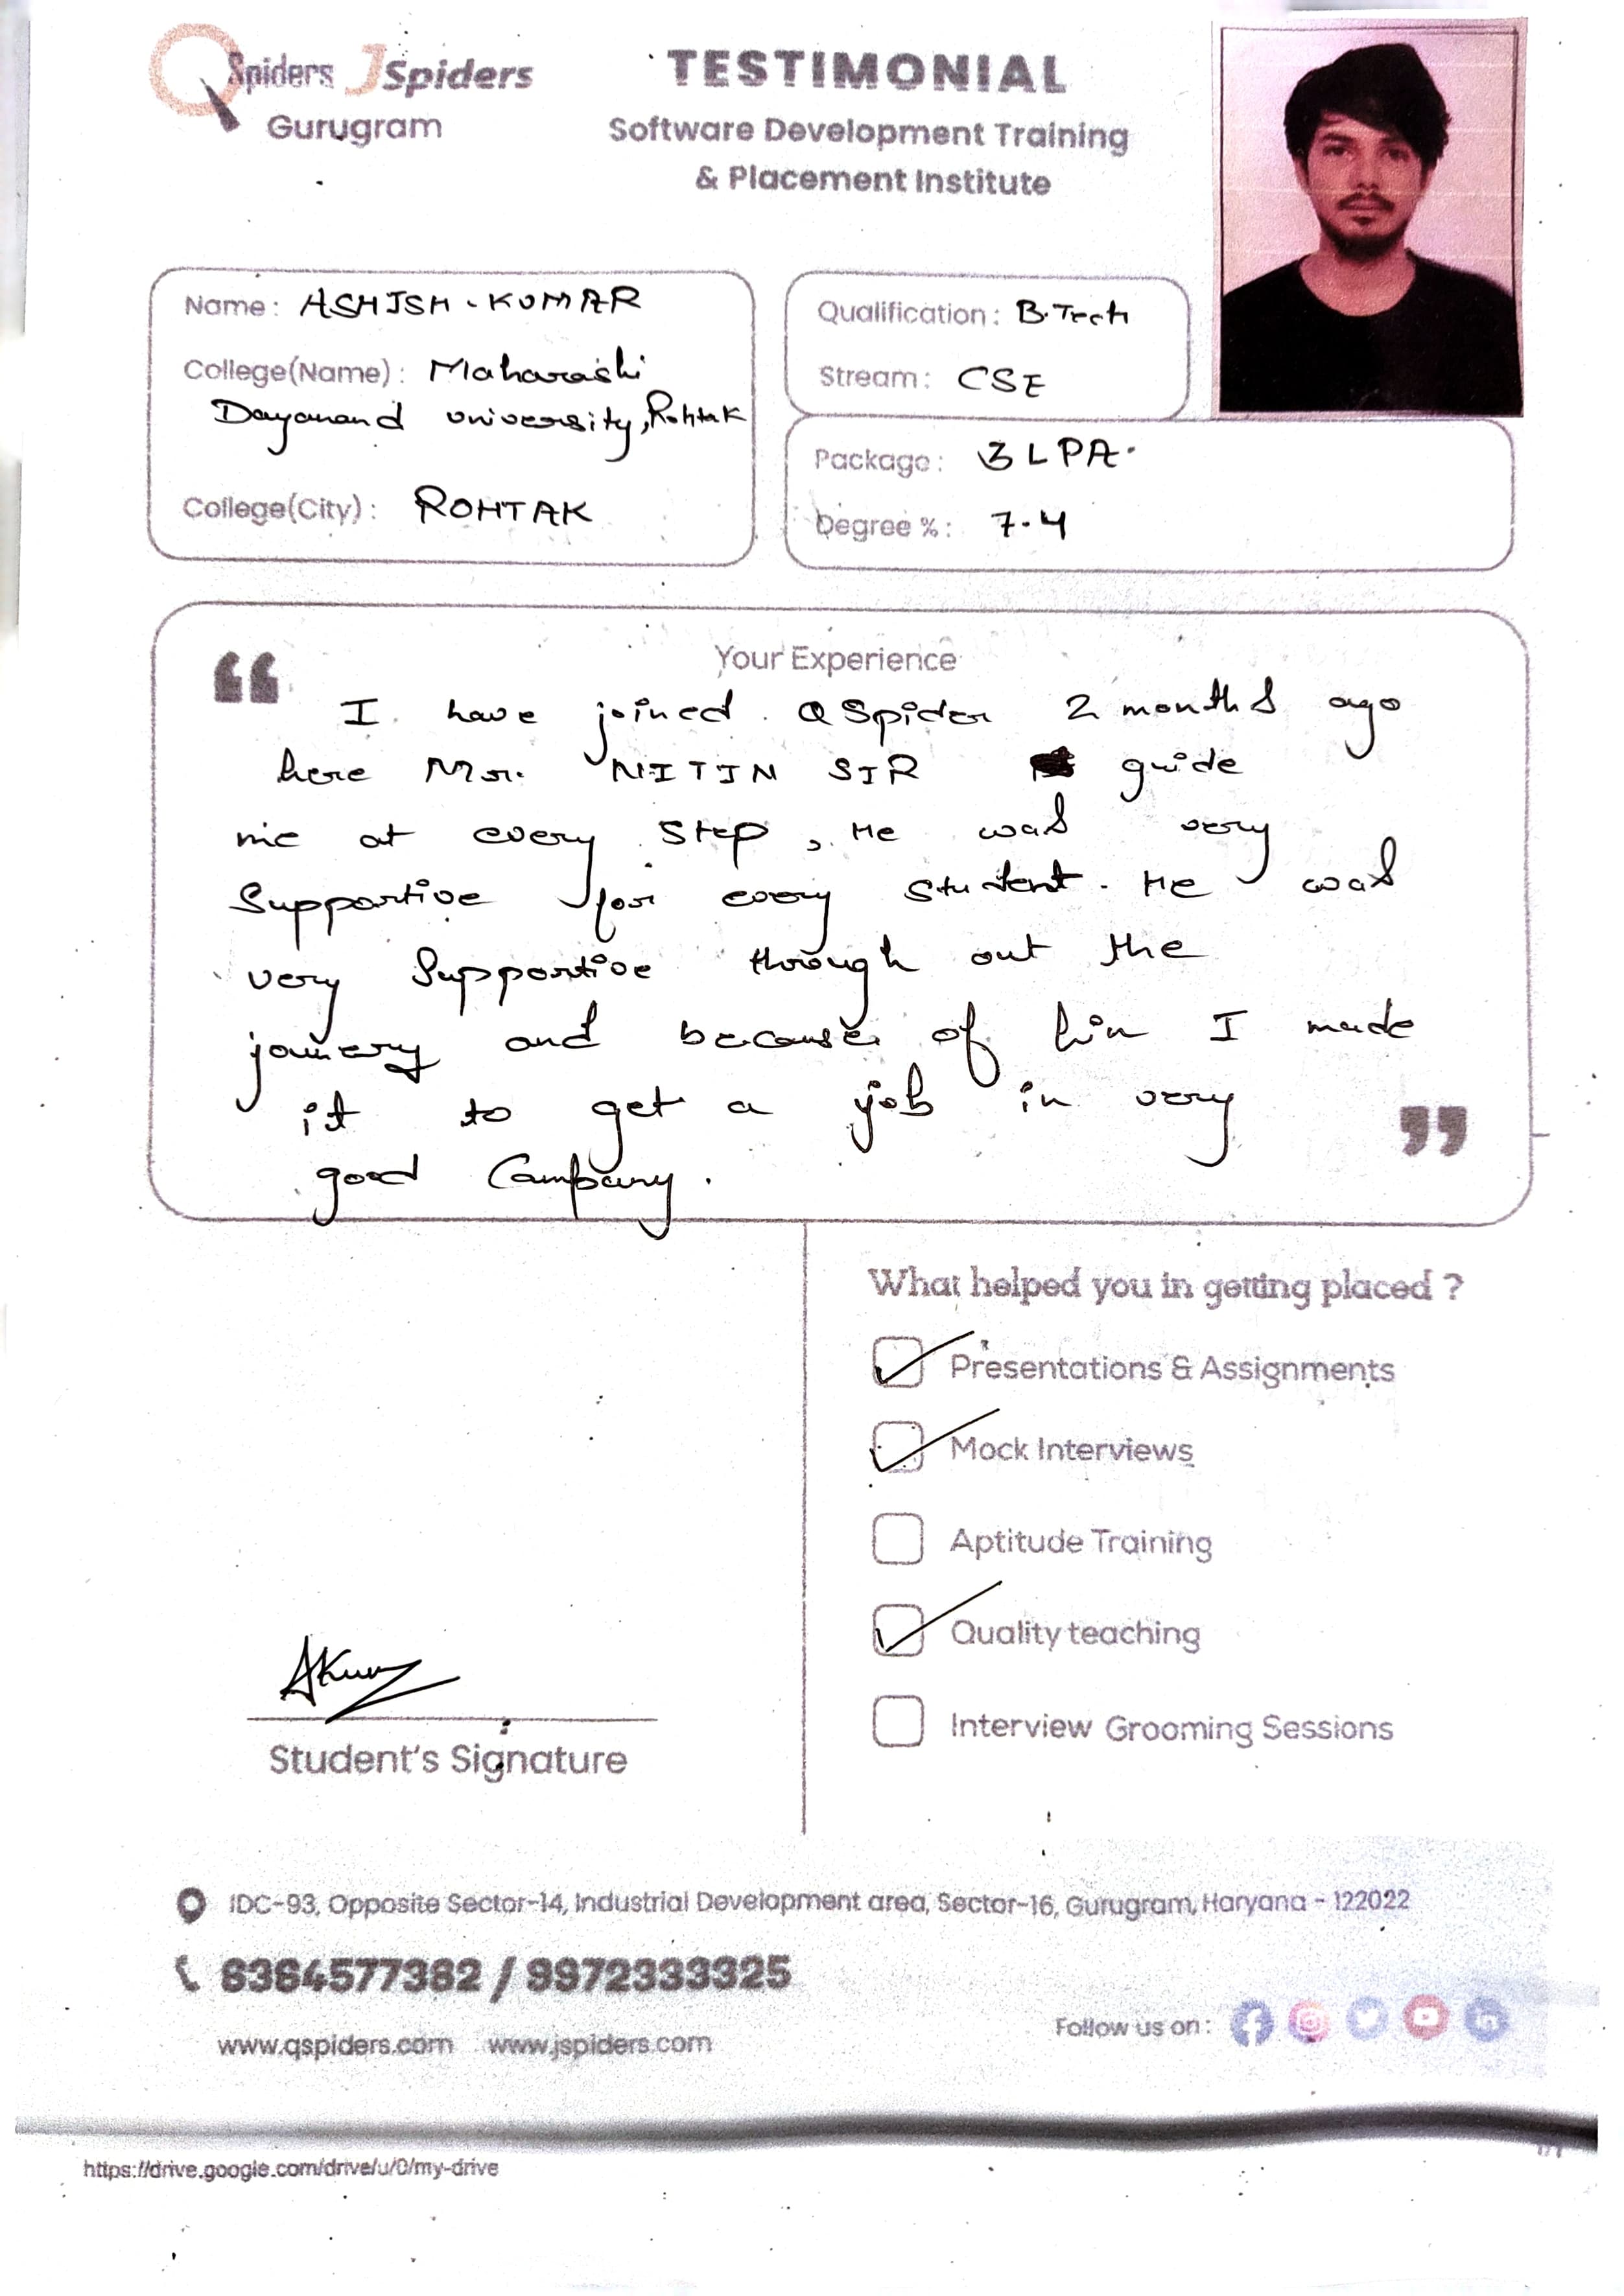 QSpiders JSpiders
Gurugram
TESTIMONIAL
Software Development Training
& Placement Institute
Name : ASHISH - KUMAR
College(Name) : Maharashi
Dayanand university, Rohtak
College(City) : ROHTAK
Qualification : B.Tech
Stream : CSE
Package : 3 LPA.
Degree % : 7.4
Your Experience
“ I have joined QSpider 2 months ago
here Mr. NITIN SIR guide
me at every step, He was very
Supportive for every student. He was
very Supportive through out the
jounery and because of him I made
it to get a job in very
good Company. ”
Student's Signature
What helped you in getting placed ?
Presentations & Assignments
Mock Interviews
Aptitude Training
Quality teaching
Interview Grooming Sessions
IDC-93, Opposite Sector-14, Industrial Development area, Sector-16, Gurugram, Haryana - 122022
6364577382 / 9972333325
www.qspiders.com www.jspiders.com
Follow us on :
https://drive.google.com/drive/u/0/my-drive